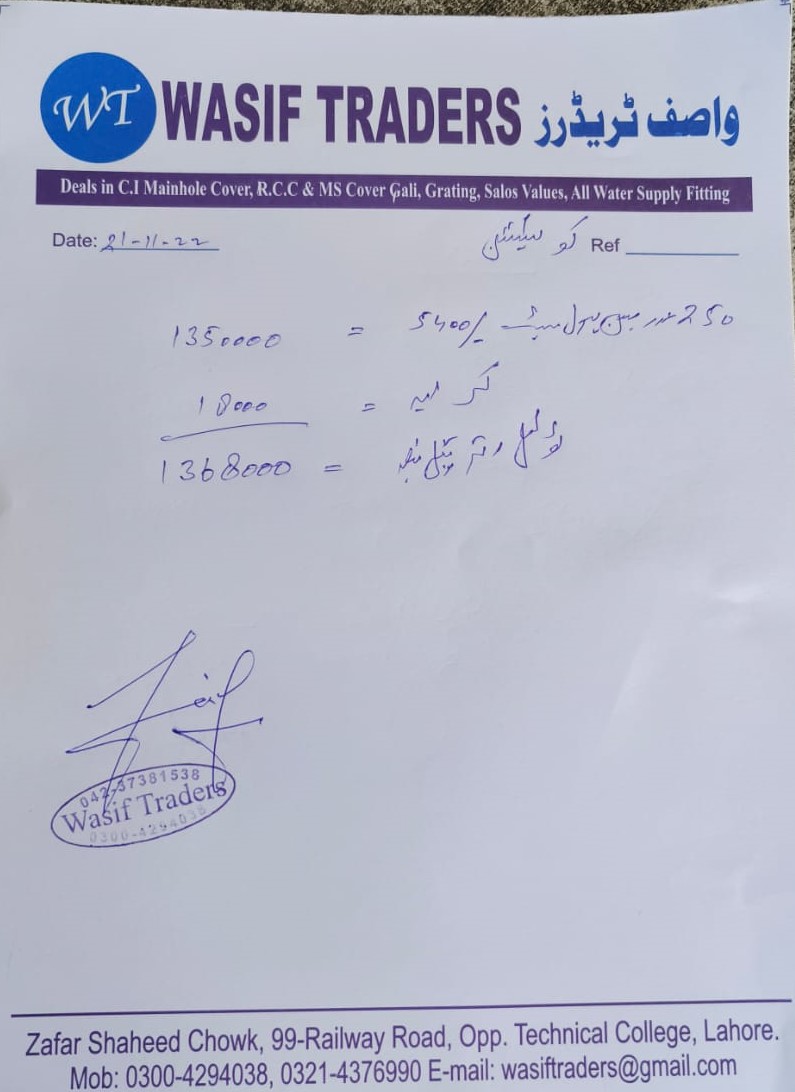 WT WASIF TRADERS واصف ٹریڈرز
Deals in C.I Mainhole Cover, R.C.C & MS Cover Gali, Grating, Salos Values, All Water Supply Fitting
Date: 21-11-22 کوٹیشن Ref
250 عدد مین ہول سیٹ 5400/- = 1350000
کرایہ = 18000
ٹوٹل رقم = 1368000
042-37381538
Wasif Traders
0300-4294038
Zafar Shaheed Chowk, 99-Railway Road, Opp. Technical College, Lahore.
Mob: 0300-4294038, 0321-4376990 E-mail: wasiftraders@gmail.com